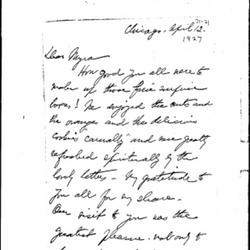 Chicago, April 12.
1927
Dear Myra
How good you all were to
make up those three surprise
boxes! We enjoyed the nuts and
the oranges and the delicious
cookies "casually" and were greatly
refreshed spiritually by the
lovely letters - My gratitude to
you all for my share.
Our visit to you was the
greatest pleasure - not only to